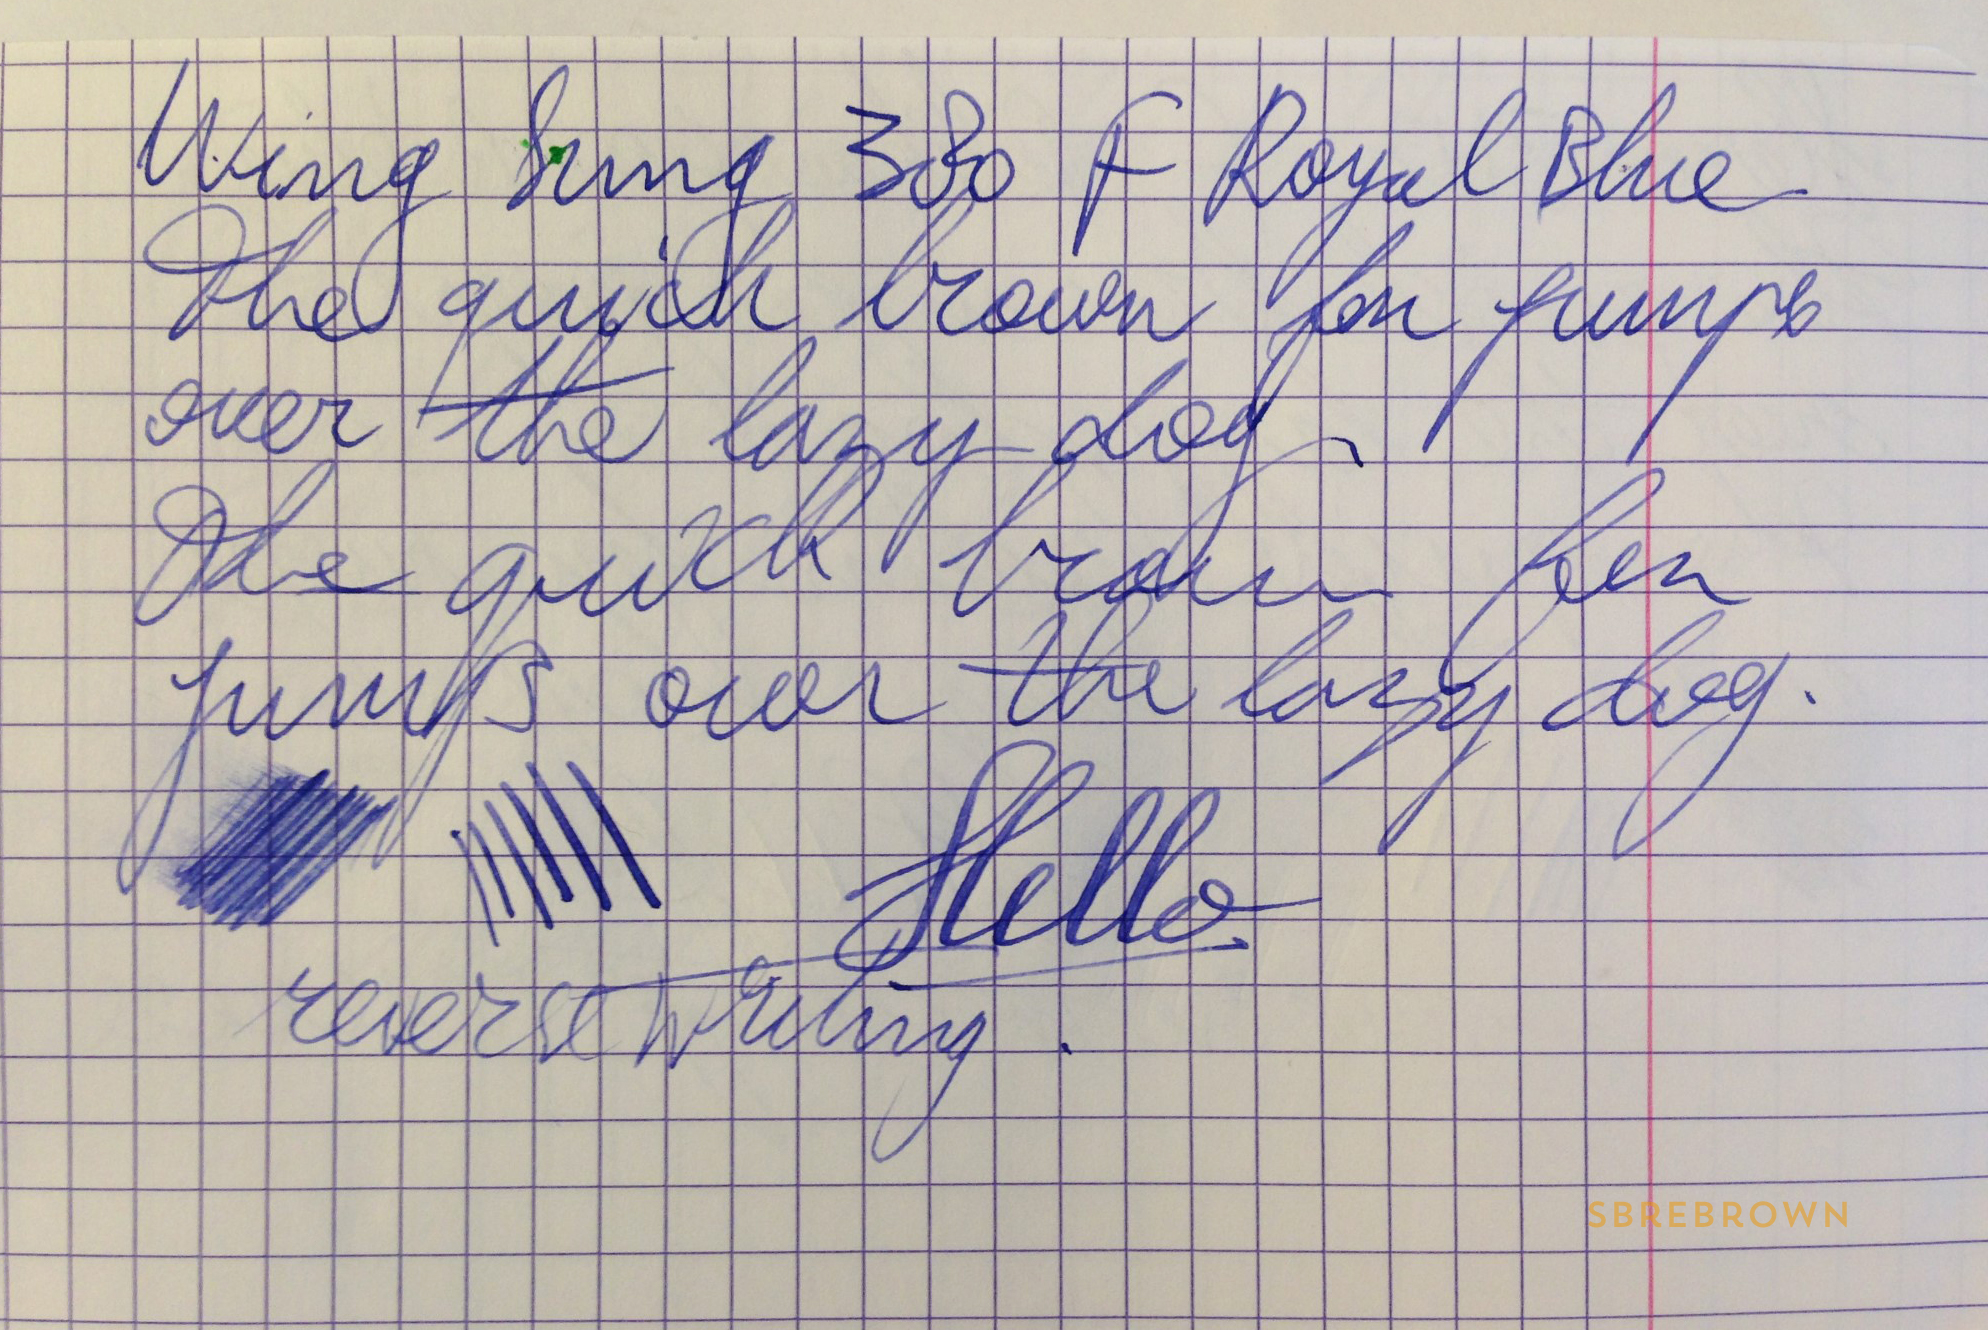 Wing Sung 380 F Royal Blue
The quick brown fox jumps
over the lazy dog.
The quick brown fox
jumps over the lazy dog.
Hello
reverse writing.
SBREBROWN